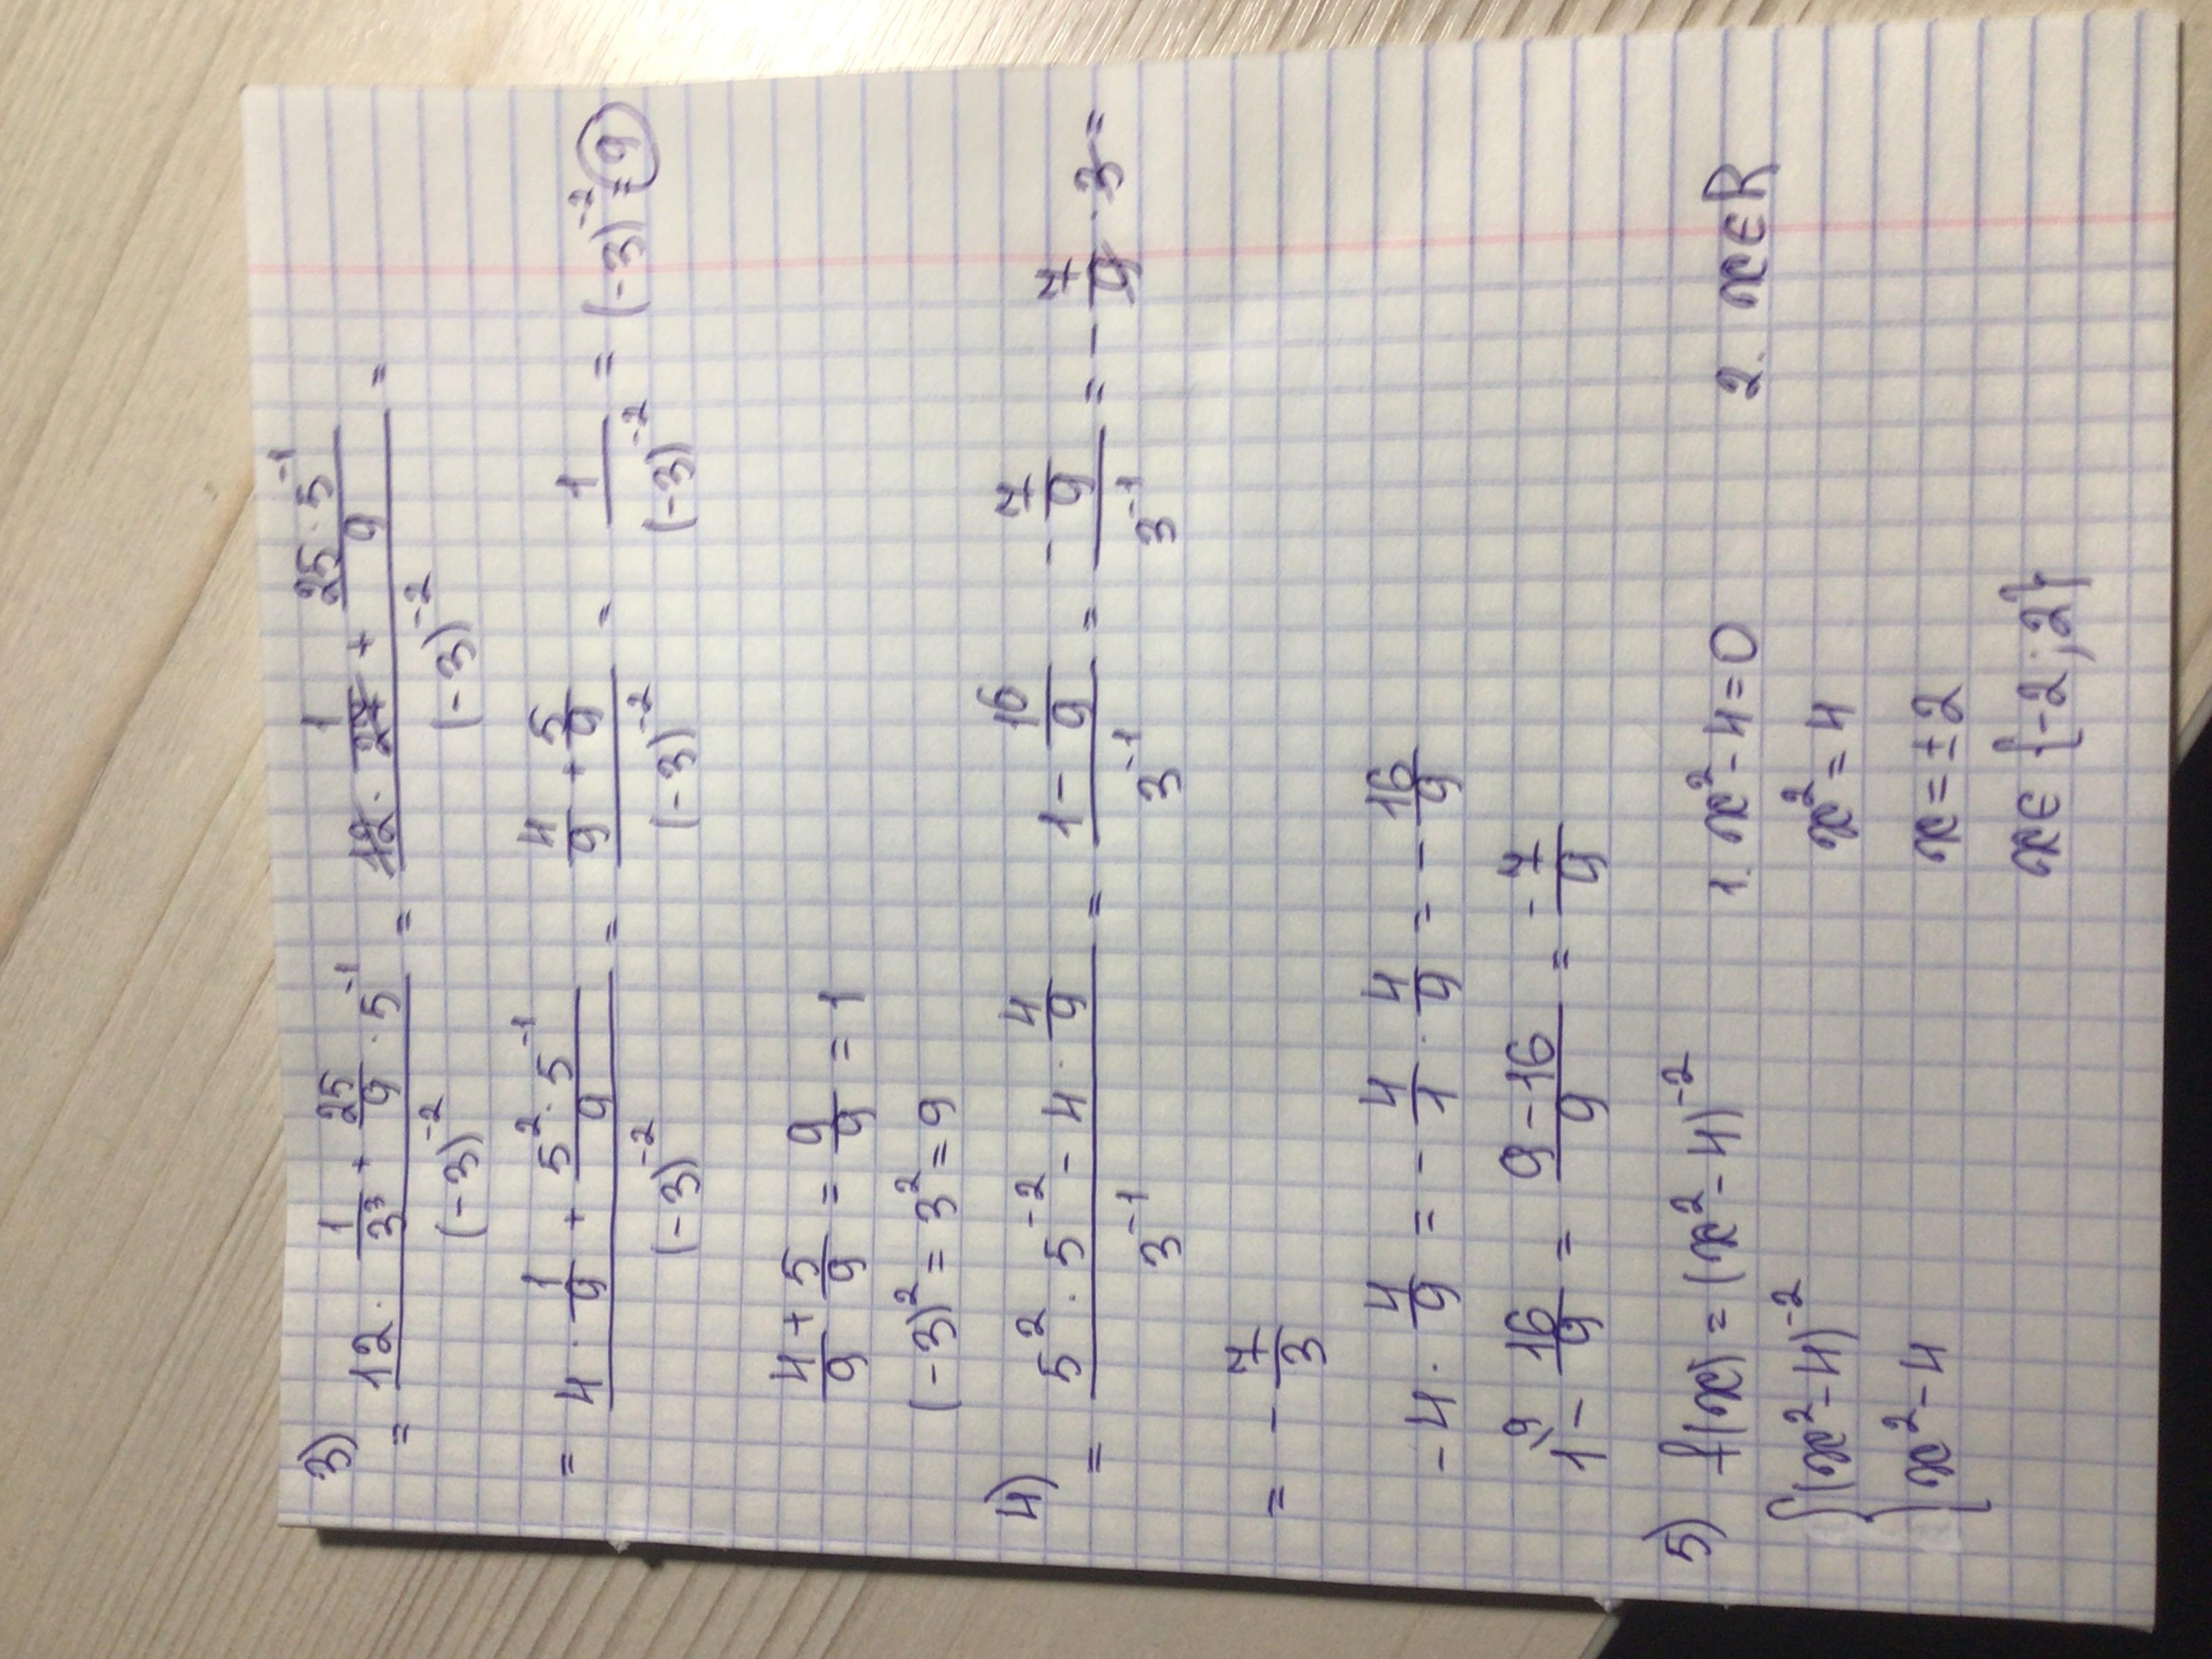 3)
= (12 · 1/3³ + 25/9 · 5⁻¹)/(-3)⁻² = (12 · 1/27 + (25 · 5⁻¹)/9)/(-3)⁻² =
= (4 · 1/9 + (5² · 5⁻¹)/9)/(-3)⁻² = (4/9 + 5/9)/(-3)⁻² = 1/(-3)⁻² = (-3)⁻² = 9
4/9 + 5/9 = 9/9 = 1
(-3)² = 3² = 9
4)
= (5² · 5⁻² - 4 · 4/9)/3⁻¹ = (1 - 16/9)/3⁻¹ = (- 7/9)/3⁻¹ = - 7/9 · 3 =
= - 7/3
- 4 · 4/9 = - 4/1 · 4/9 = - 16/9
1\9 - 16/9 = (9 - 16)/9 = - 7/9
5) f(x) = (x² - 4)⁻² 1. x² - 4 = 0 2. x∈R
{(x² - 4)⁻² x² = 4
{x² - 4 x = ±2
x∈{-2; 2}